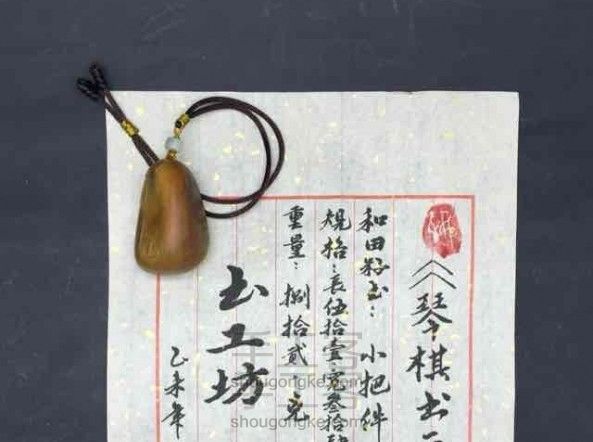 《琴棋书
和田籽玉：小把件
规格：长伍拾壹·宽叁拾肆
重量：捌拾贰·克
玉工坊
乙未年
手工客
shougongke.com
shougongke.com